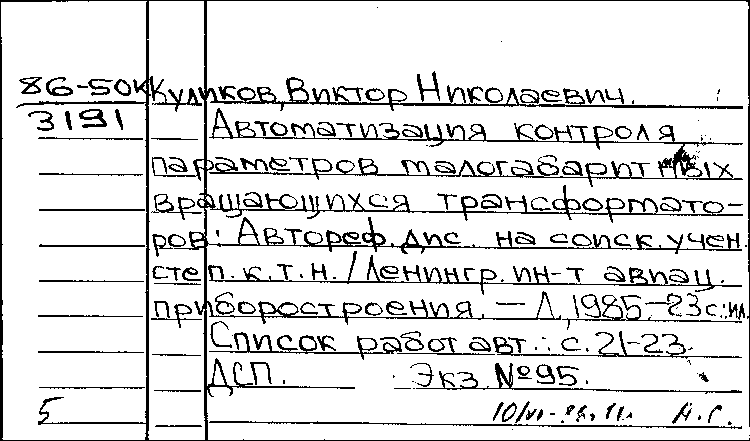 86-50К Куликов, Виктор Николаевич.
3191 Автоматизация контроля
параметров малогабаритных
вращающихся трансформато-
ров: Автореф. дис. на соиск. учен.
степ. к.т.н. / Ленингр. ин-т авиац.
приборостроения. – Л., 1985.–23 с.: ил.
Список работ авт.: с. 21-23.
ДСП. Экз. №95.
5 10/VI- А.Г.